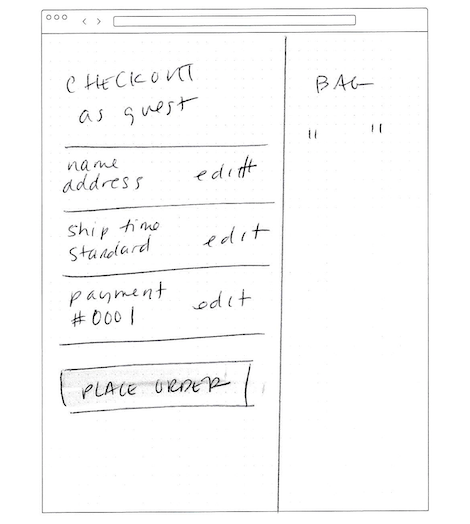 CHECKOUT
as guest
name
address
edit
ship time
standard
edit
payment
#0001
edit
PLACE ORDER
BAG
" "